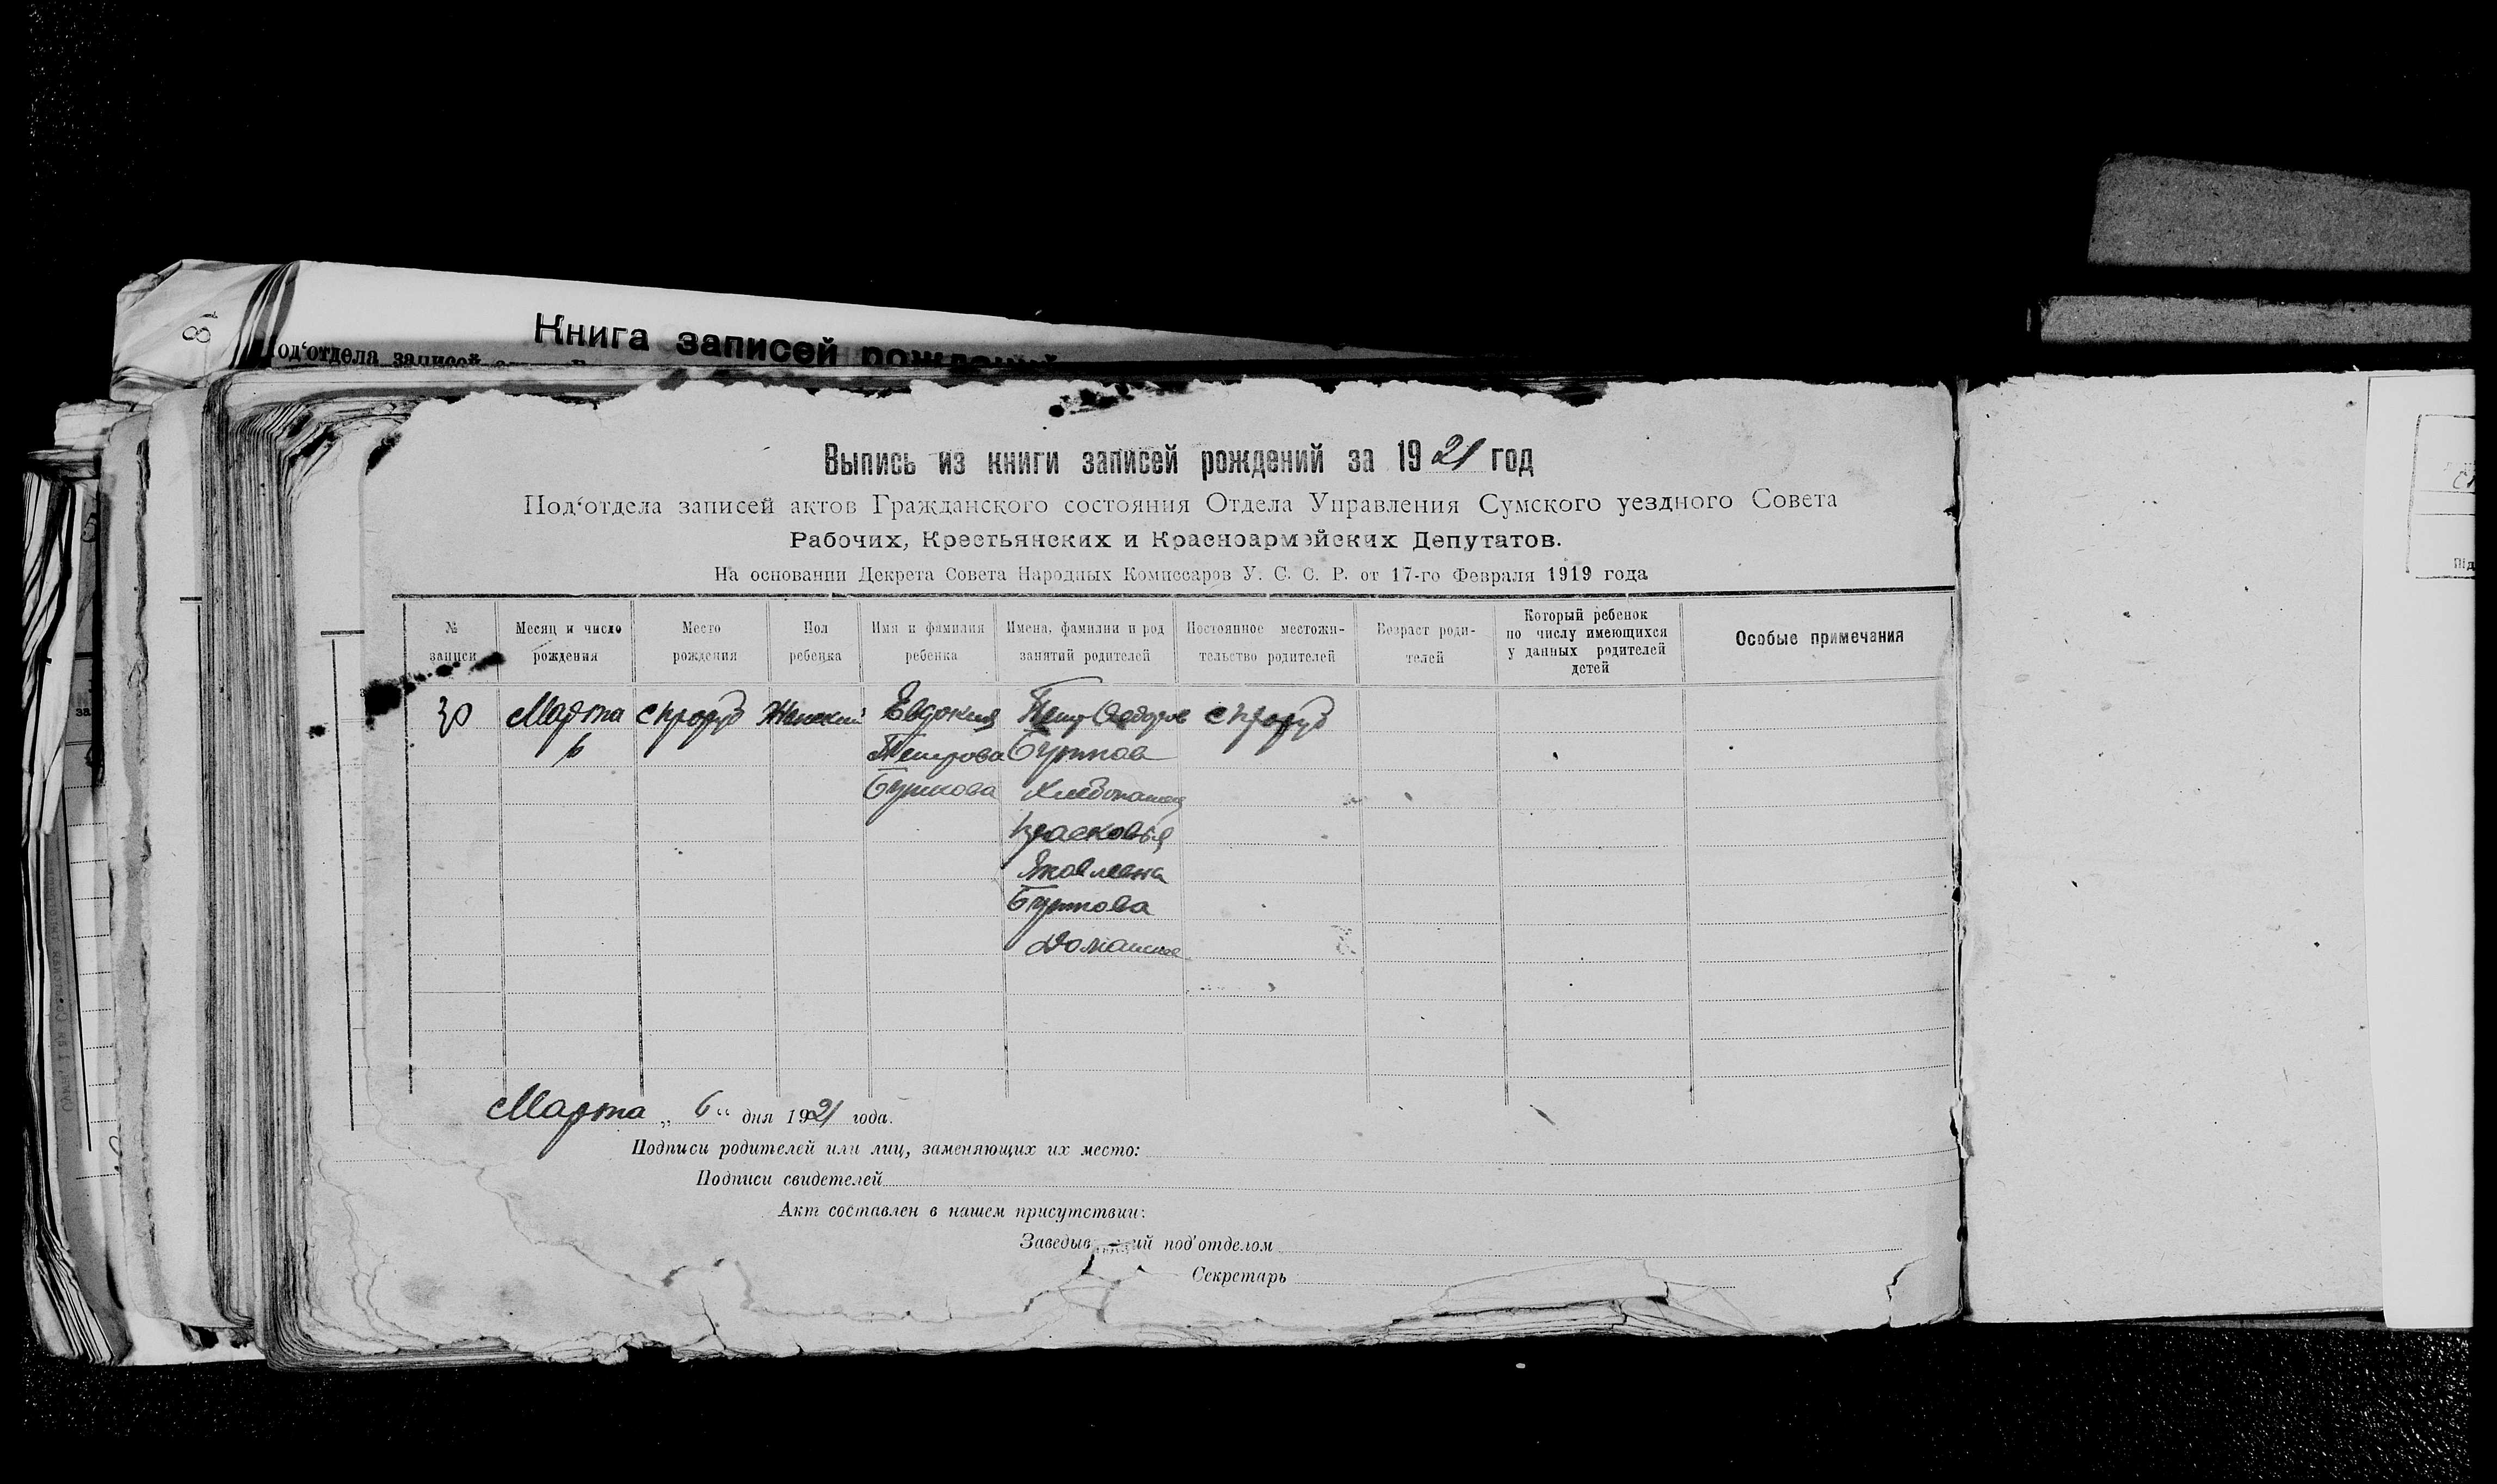 8
Книга записей рождений
од‘отдела записей
Выпись из книги записей рождений за 1921 год
Под‘отдела записей актов Гражданского состояния Отдела Управления Сумского уездного Совета
Рабочих, Крестьянских и Красноармейских Депутатов.
На основании Декрета Совета Народных Комиссаров У. С. С. Р. от 17-го Февраля 1919 года
№ записи
Месяц и число рождения
Место рождения
Пол ребенка
Имя и фамилия ребенка
Имена, фамилии и род занятий родителей
Постоянное местожительство родителей
Возраст родителей
Который ребенок по числу имеющихся у данных родителей детей
Особые примечания
30 Марта с Проруб Женский Евдокия Петр Федоров с Проруб
6 Петрова Буртков
Бурткова Хлебопашец
Прасковья
Яковлевна
Бурткова
Домашнее
Марта „ 6 “ дня 1921 года.
Подписи родителей или лиц, заменяющих их место:
Подписи свидетелей
Акт составлен в нашем присутствии:
Заведыв ий под‘отделом
Секретарь